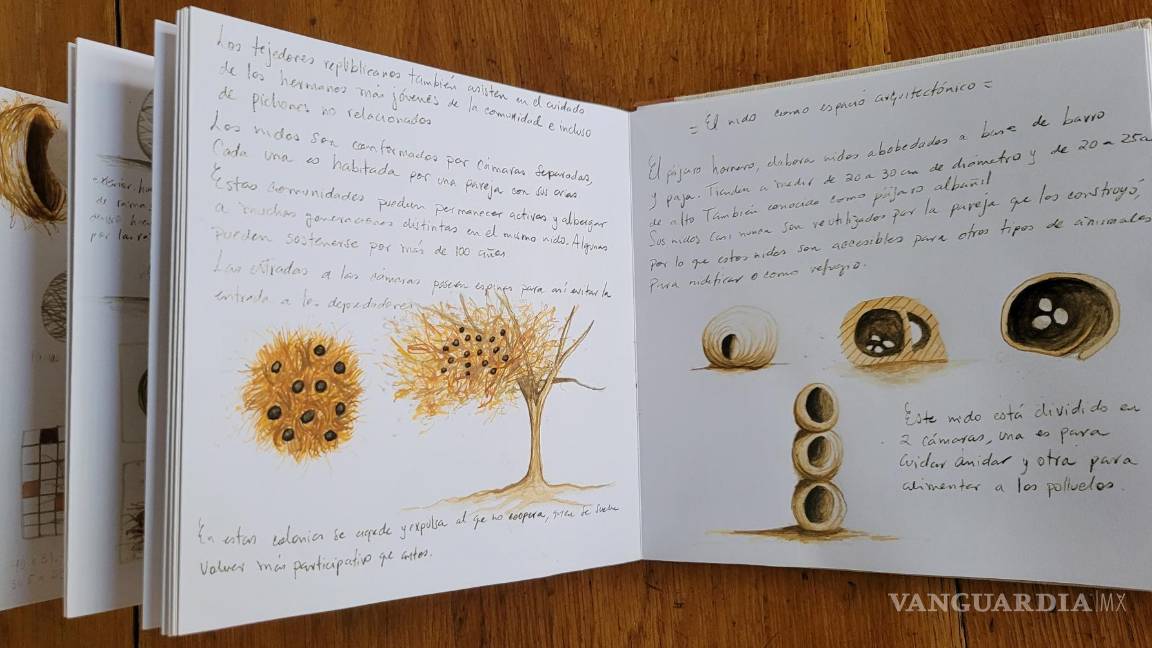 Los tejedores republicanos también asisten en el cuidado
de los hermanos más jóvenes de la comunidad e incluso
de pichones no relacionados
Los nidos son conformados por cámaras separadas,
Cada una es habitada por una pareja con sus crías.
Estas comunidades pueden permanecer activas y albergar
a muchas generaciones distintas en el mismo nido. Algunas
pueden sostenerse por más de 100 años
Las entradas a las cámaras poseen espinas para así evitar la
entrada a los depredadores
En estas colonias se agrede y expulsa al que no coopera, quien se suele
volver más participativo que antes.
= El nido como espacio arquitectónico =
El pájaro hornero, elabora nidos abobedados a base de barro
y paja. Tienden a medir de 20 a 30 cm de diámetro y de 20 a 25
de alto También conocido como pájaro albañil
Sus nidos casi nunca son reutilizados por la pareja que los construyó,
por lo que estos nidos son accesibles para otros tipos de animales
para nidificar o como refugio.
Este nido está dividido en
2 cámaras, una es para
cuidar ánidar y otra para
alimentar a los polluelos.
VANGUARDIA|MX